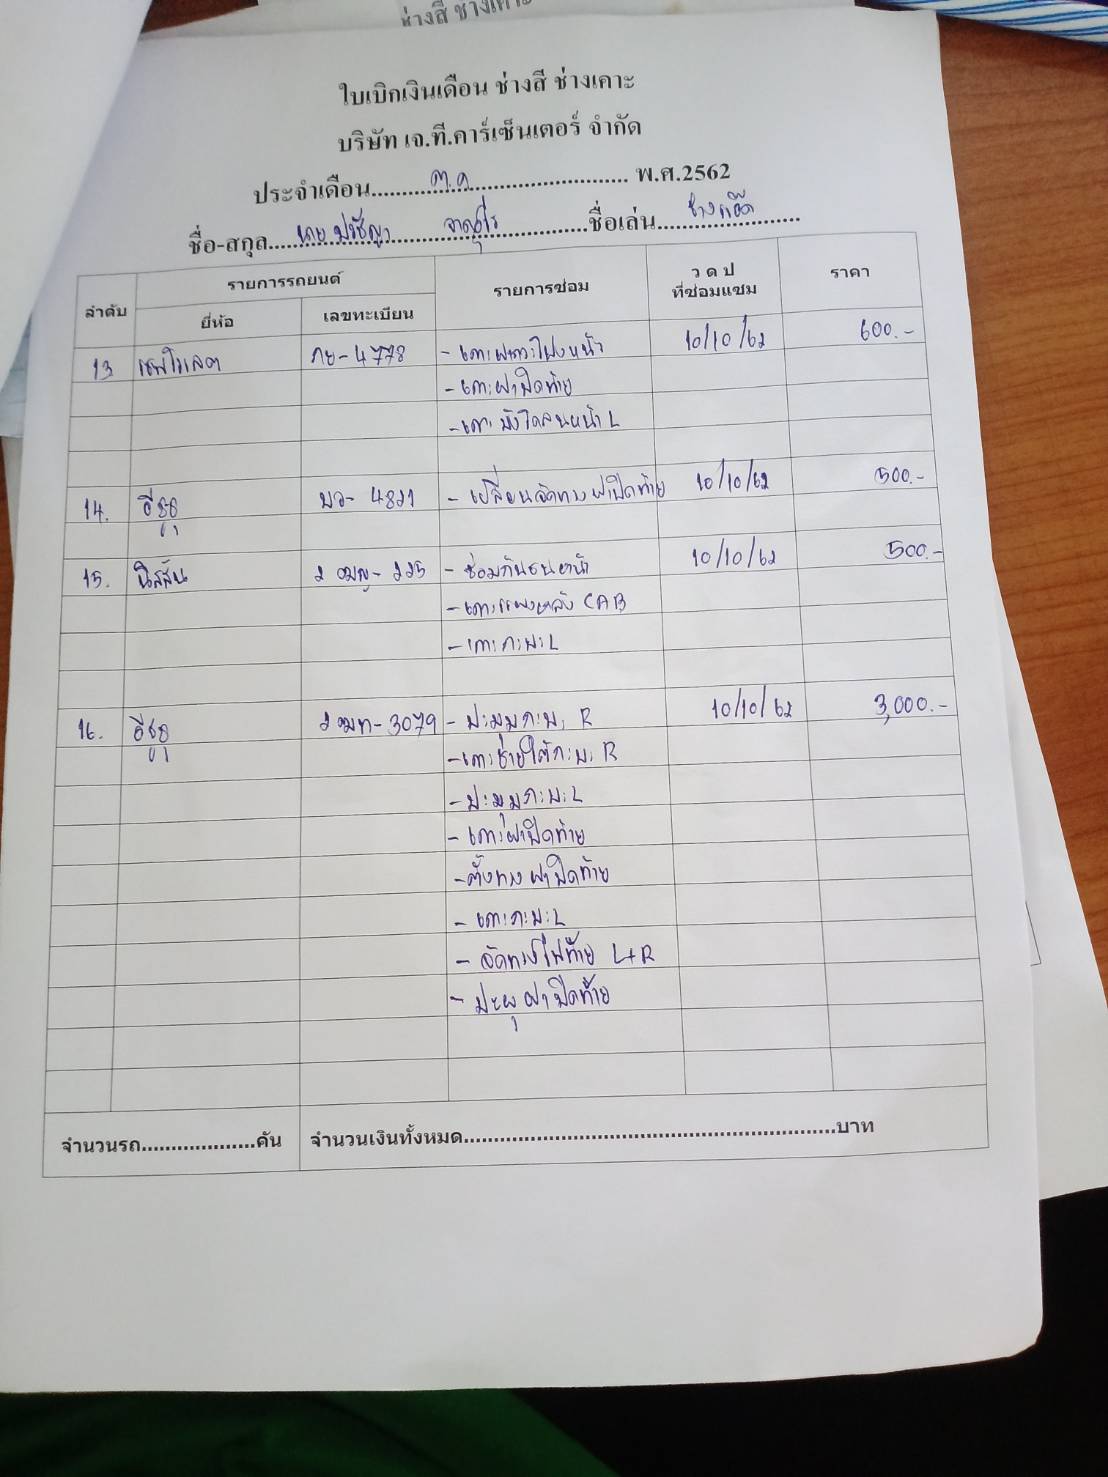 ช่างสี ช่างเคาะ
ใบเบิกเงินเดือน ช่างสี ช่างเคาะ
บริษัท เจ.ที.คาร์เซ็นเตอร์ จำกัด
ประจำเดือน ต.ค พ.ศ.2562
ชื่อ-สกุล นาย ปรัชญา ชื่อเล่น ช่างแอ๊ด
ลำดับ รายการรถยนต์ รายการซ่อม ว ด ป ที่ซ่อมแซม ราคา
ยี่ห้อ เลขทะเบียน
13 เชฟโรเลต กย-4778 - เคาะฝากระโปรงหน้า 10/10/62 600.-
- เคาะฝาปิดท้าย
- เคาะบังโคลนหน้า L
14. อีซูซุ บว- 4821 - เปลี่ยนจัดทางฝาปิดท้าย 10/10/62 500.-
15. นิสสัน 2 ฒญ- 225 - ซ่อมกันชนหน้า 10/10/62 500.-
- เคาะแผงหลัง CAB
- เคาะกะบะ L
16. อีซูซุ 2 ฒท- 3079 - ปะมุมกะบะ R 10/10/62 3,000.-
- เคาะช่ายใต้กะบะ R
- ปะมุมกะบะ L
- เคาะฝาปิดท้าย
- ตั้งทางฝาปิดท้าย
- เคาะกะบะ L
- จัดทางไฟท้าย L+R
- ปะผุฝาปิดท้าย
จำนวนรถ คัน จำนวนเงินทั้งหมด บาท